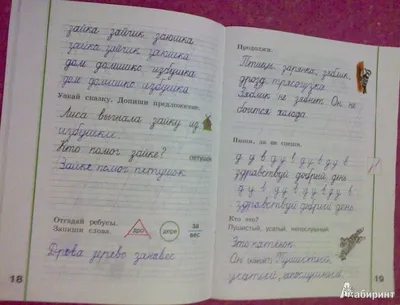 зайка зайчик заюшка
зайка зайчик заюшка
дом домишко избушка
дом домишко избушка
Узнай сказку. Допиши предложение.
Лиса выгнала зайку из
избушки
Кто помог зайке?
петушок
Зайке помог петушок
Отгадай ребусы.
Запиши слова.
дро
дере
за
вес
Дрова дерево занавес
18
Продолжи.
Птицы: зарянка, зяблик,
дрозд трясогузка
Зяблик не зябнет. Он не
боится холода.
Пиши, да не спеши.
здравствуй добрый день
здравствуй добрый день
Кто это?
Пушистый, усатый, непослушный.
Это котёнок.
Он имеет Пушистый,
усатый, непослушный.
19
Лабиринт